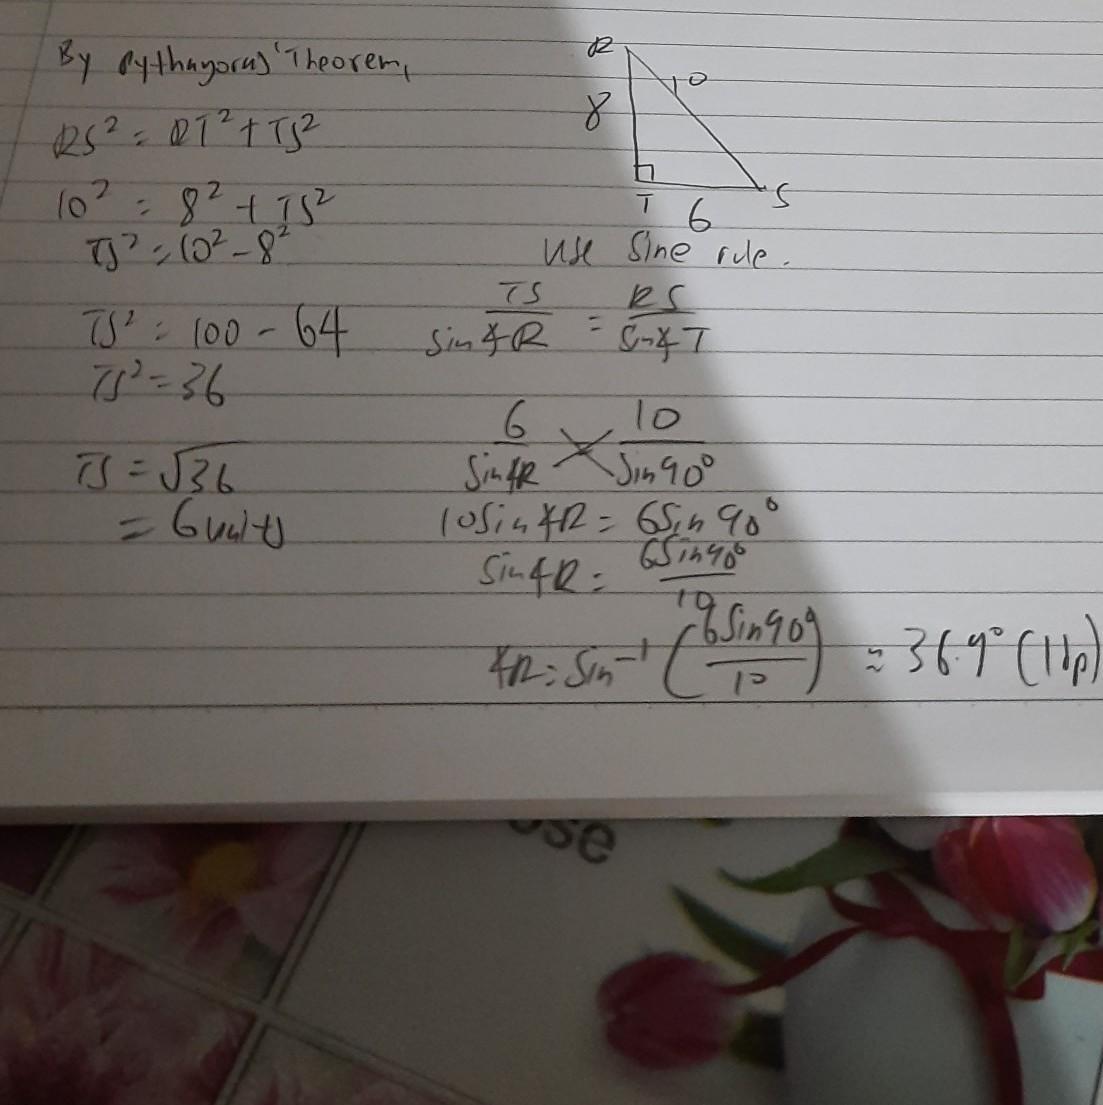 By Pythagoras' Theorem,
RS² = RT² + TS²
10² = 8² + TS²
TS² = 10² - 8²
TS² = 100 - 64
TS² = 36
TS = √36
= 6 units
R
8
10
T
6
S
Use Sine rule.
TS/sin∡R = RS/sin∡T
6/sin∡R 10/sin90°
10sin∡R = 6sin90°
sin∡R = 6sin90°/10
∡R = sin⁻¹(6sin90°/10) ≈ 36.9° (1dp)